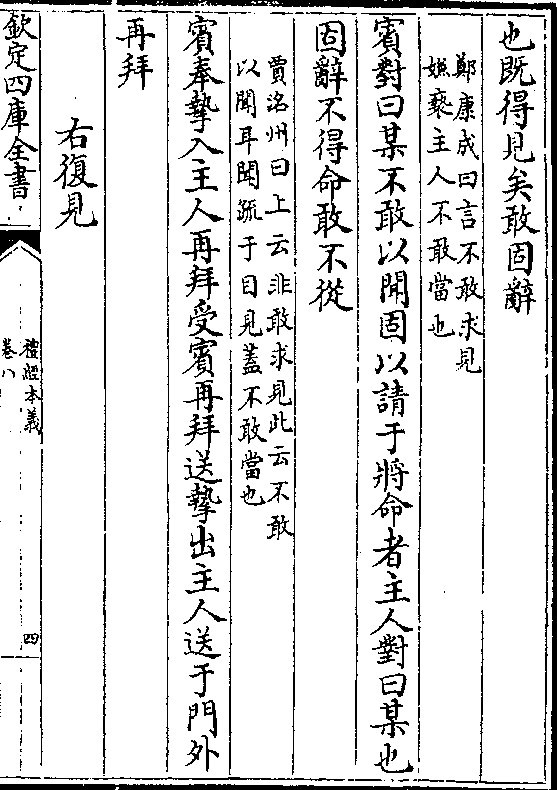 也既得見矣敢固辭
鄭康成曰言不敢求見
嫌褻主人不敢當也
賓對曰某不敢以聞固以請于將命者主人對曰某也
固辭不得命敢不從
賈洺州曰上云非敢求見此云不敢
以聞耳聞疏于目見蓋不敢當也
賓奉摯入主人再拜受賓再拜送摯出主人送于門外
再拜
右復見
欽定四庫全書
禮經本義
卷八
四